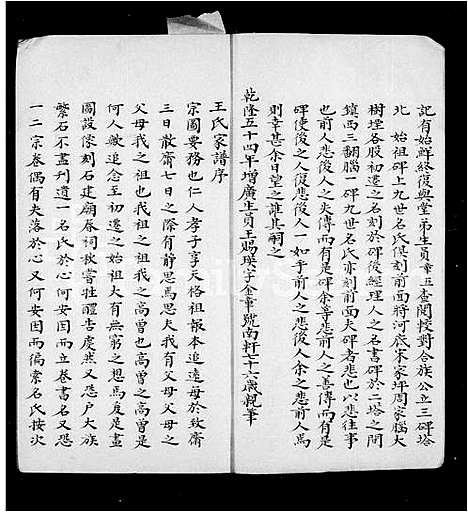 記有始鮮終復與堂弟生員幸五查閱校對合族公立三碑塔
北　始祖碑上九世名氏俱刻前面將河底宋家坪周家腦大
樹埋各股初遷之名刻於碑後經理人之名書碑於二塔之間
鎮西三翻腦一碑九世名氏亦刻前面夫碑者悲也以悲往事
也前人悲後人之失傳而有是碑余等悲前人之善傳而有是
碑使後之人復悲後人一如乎前人之悲後人余之悲前人焉
則幸甚余日望之誰其嗣之
乾隆五十四年增廣生員王賜瑛字金章號南軒七十六歲親筆
王氏家譜序
宗圖要務也仁人孝子享天格祖報本追遠每於致齋
三日散齋七日之際有靜思焉思夫我有父母父母之
父母我之祖也我祖之祖我之高曾也高曾之高曾是
何人歟追念至初遷之始祖大有無窮之想焉度是畫
圖設像刻石建廟春祠秋嘗牲醴告虔然又恐户大族
繁石不盡刋遺一名氏於心何安因而立卷書名又恐
一二宗卷偶有失落於心又何安因而徧索名氏按次